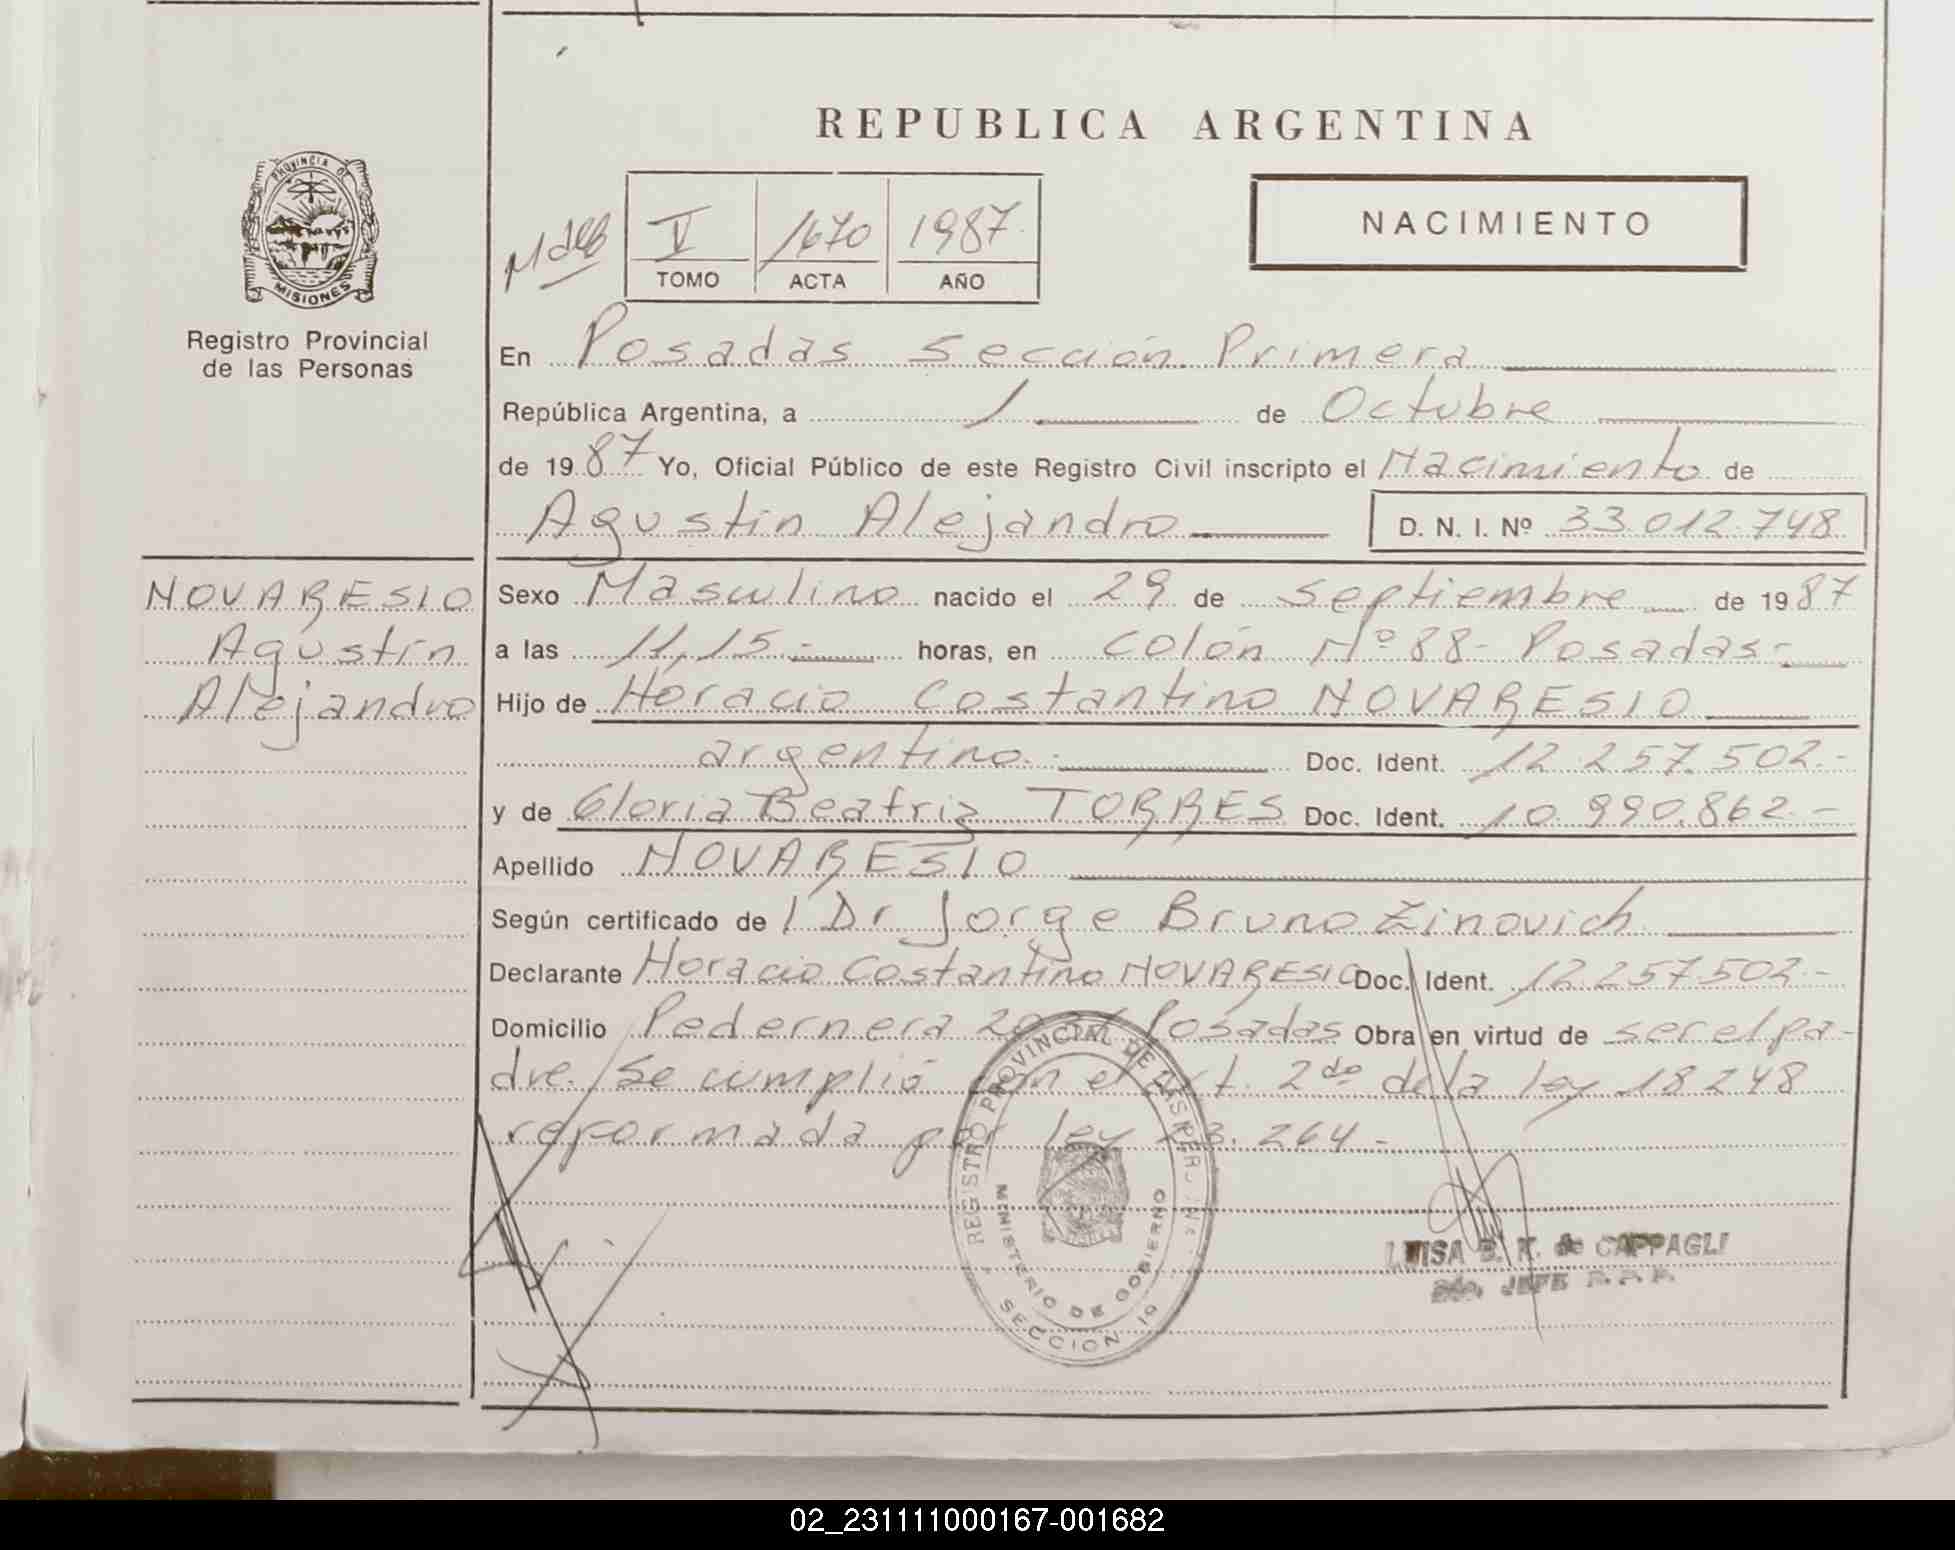 REPUBLICA ARGENTINA
PROVINCIA DE
MISIONES
Registro Provincial
de las Personas
V 1670 1987
TOMO ACTA AÑO
NACIMIENTO
En Posadas Sección Primera
República Argentina, a 1 de Octubre
de 1987 Yo, Oficial Público de este Registro Civil inscripto el Nacimiento de
Agustín Alejandro D. N. I. Nº 33.012.748
NOVARESIO
Agustín
Alejandro
Sexo Masculino nacido el 29 de Septiembre de 1987
a las 11,15.- horas, en Colón Nº 88- Posadas-
Hijo de Horacio Costantino NOVARESIO
argentino.- Doc. Ident. 12.257.502.-
y de Gloria Beatriz TORRES Doc. Ident. 10.990.862.-
Apellido NOVARESIO
Según certificado de l Dr Jorge Bruno Zinovich
Declarante Horacio Costantino NOVARESIO Doc. Ident. 12.257.502.-
Domicilio Pedernera Posadas Obra en virtud de ser el pa-
dre. Se cumplió con el art. 2do de la ley 18248
reformada por ley 23.264-
REGISTRO PROVINCIAL DE LAS PER
MINISTERIO DE GOBIERNO
SECCION 1º
LUISA B. K. de CAPPAGLI
JEFE
02_231111000167-001682